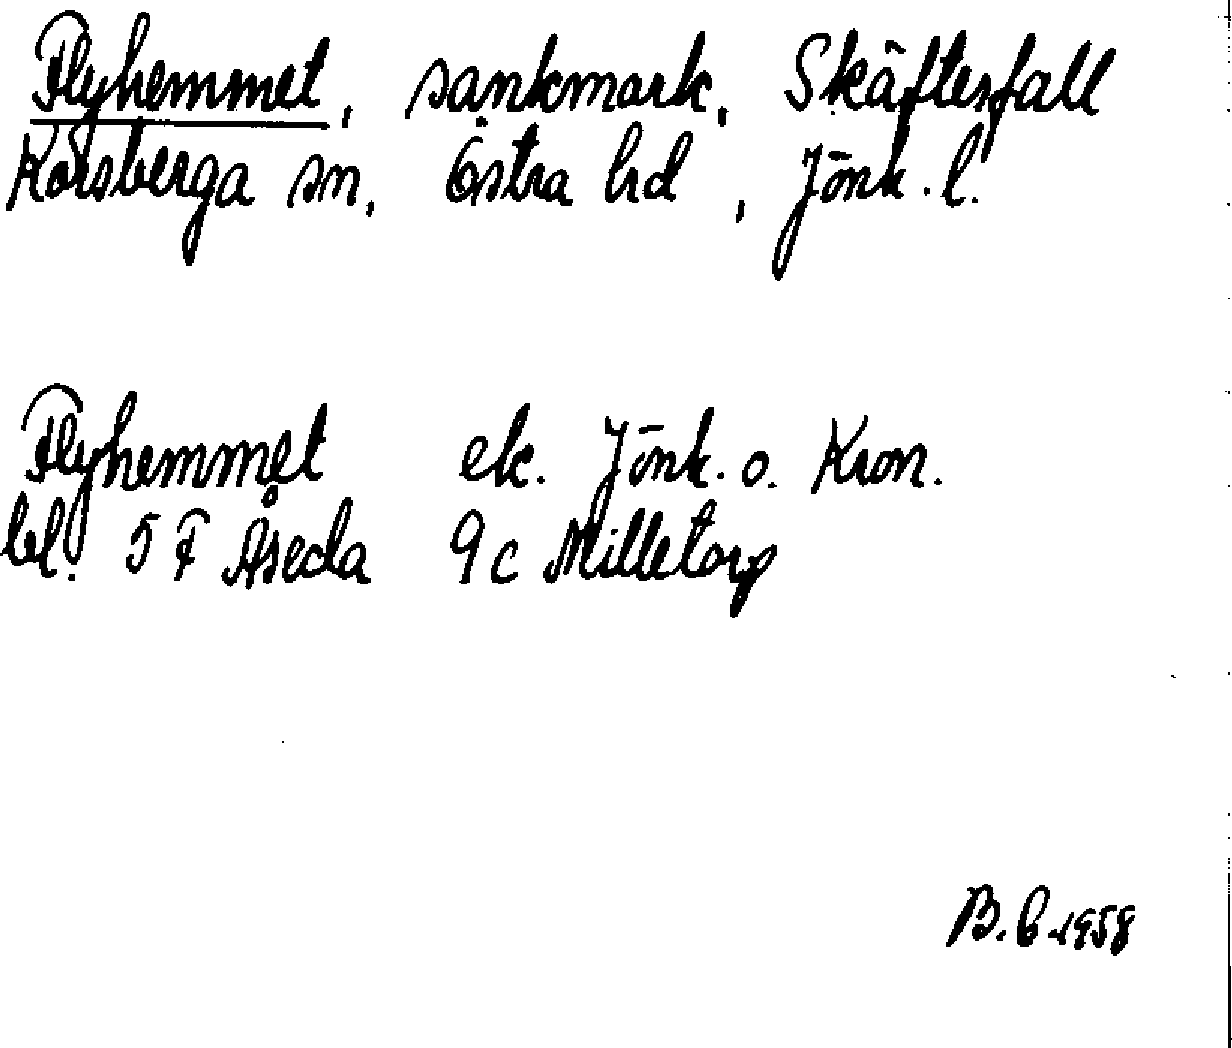 Flyhemmet, sankmark, Skäftesfall
Korsberga sn, Östra hd, Jönk. l.
Flyhemmet ek. Jönk. o. Kron.
bl. 5 F Åseda 9c Milletorp
B. C. 1958